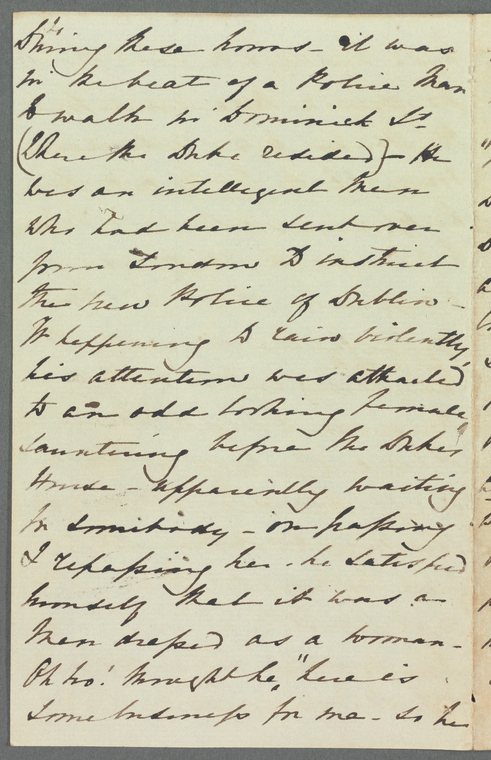 During these hours - it was
in the beat of a Police Man
to walk in Dominick St
(Where the Duke resided) - He
was an intelligent Man
who had been sent over
from London to instruct
the new Police of Dublin -
It happening to rain violently,
his attention was attracted
to an odd looking female
sauntering before the Duke's
House - apparently waiting
for somebody - on passing
& repassing her - he satisfied
himself that it was a
Man dressed as a woman -
Oh ho! thought he, "here is
some business for me - so he